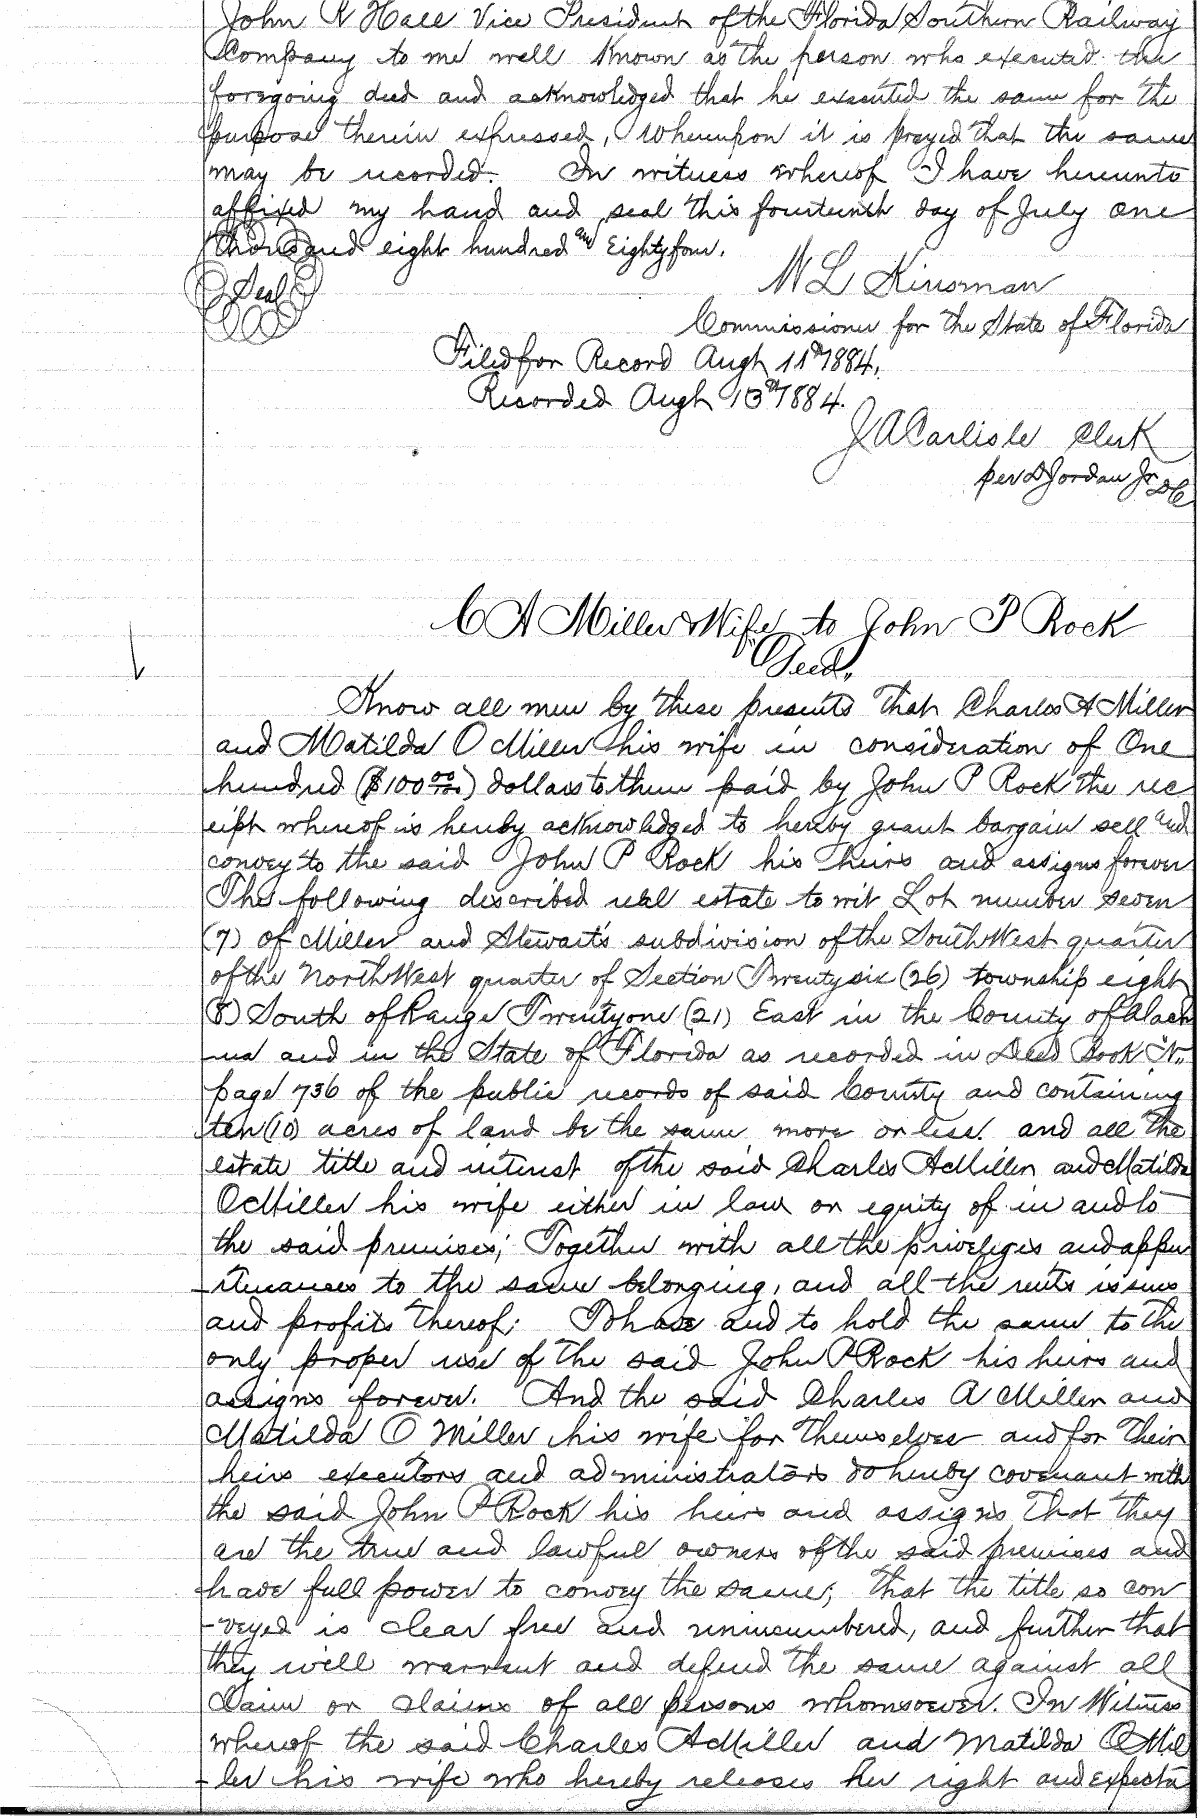 John R Hall Vice President of the Florida Southern Railway
Company to me well known as the person who executed the
foregoing deed and acknowledged that he executed the same for the
purpose therein expressed, Whereupon it is prayed that the same
may be recorded. In witness whereof I have hereunto
affixed my hand and seal this fourteenth day of July one
thousand eight hundred and Eighty four.
Seal
W L Kinsman
Commissioner for the State of Florida
Filed for Record Augt 11th 1884.
Recorded Augt 13th 1884.
J A Carlisle Clerk
per D Jordan Jr DC
C A Miller & Wife to John P Rock
Deed
Know all men by these presents That Charles A Miller
and Matilda O Miller his wife in consideration of One
hundred ($100 00/100) dollars to them paid by John P Rock the rec
eipt whereof is hereby acknowledged to hereby grant bargain sell and
convey to the said John P Rock his heirs and assigns forever
The following described real estate to wit Lot number seven
(7) of Miller and Stewart's subdivision of the South West quarter
of the North West quarter of Section Twenty six (26) township eight
(8) South of Range Twenty one (21) East in the County of Alach
-ua and in the State of Florida as recorded in Deed Book "N"
page 736 of the public records of said County and containing
ten (10) acres of land be the same more or less. and all the
estate title and interest of the said Charles A Miller and Matilda
O Miller his wife either in law or equity of in and to
the said premises; Together with all the priveleges and appur
-tenances to the same belonging, and all the rents issues
and profits thereof; To have and to hold the same to the
only proper use of the said John P Rock his heirs and
assigns forever. And the said Charles A Miller and
Matilda O Miller his wife for themselves and for their
heirs executors and administrators do hereby covenant with
the said John P Rock his heirs and assigns that they
are the true and lawful owners of the said premises and
have full power to convey the same; that the title so con
-veyed is clear free and unincumbered, and further that
they will warrant and defend the same against all
claim or claims of all persons whomsoever. In Witness
whereof the said Charles A Miller and Matilda O Mil
-ler his wife who hereby releases her right and expecta